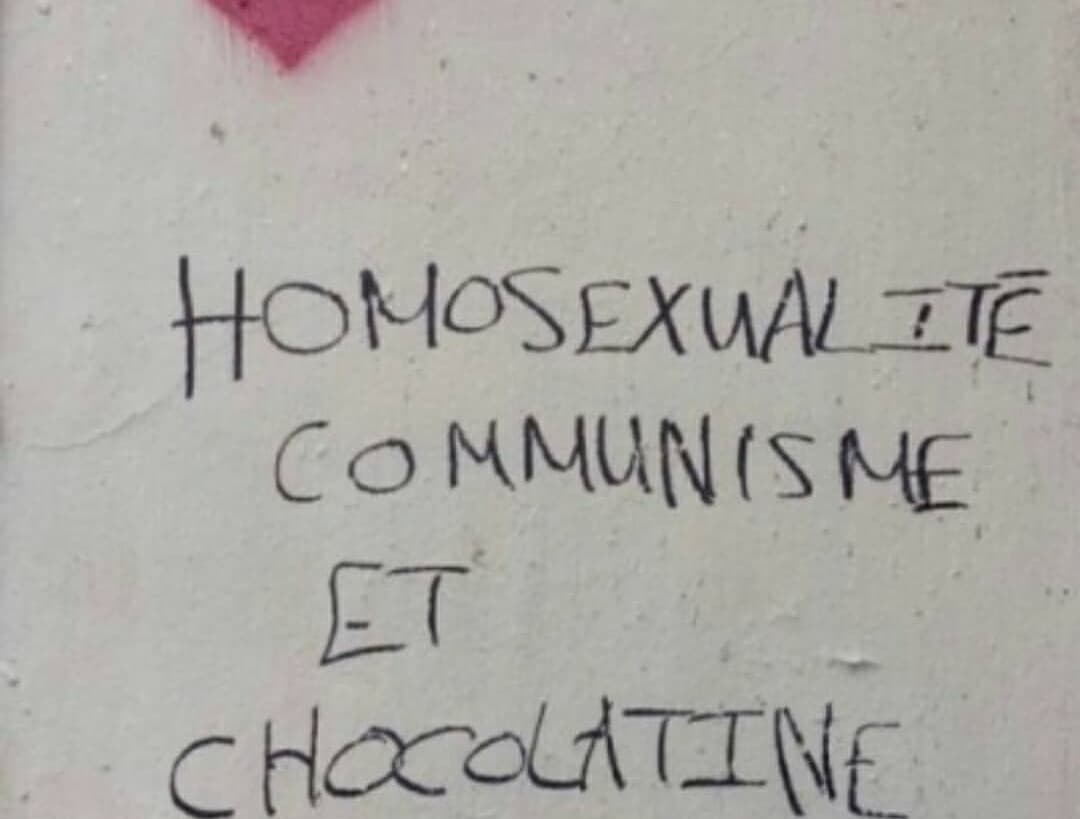 HOMOSEXUALITÉ
COMMUNISME
ET
CHOCOLATINE